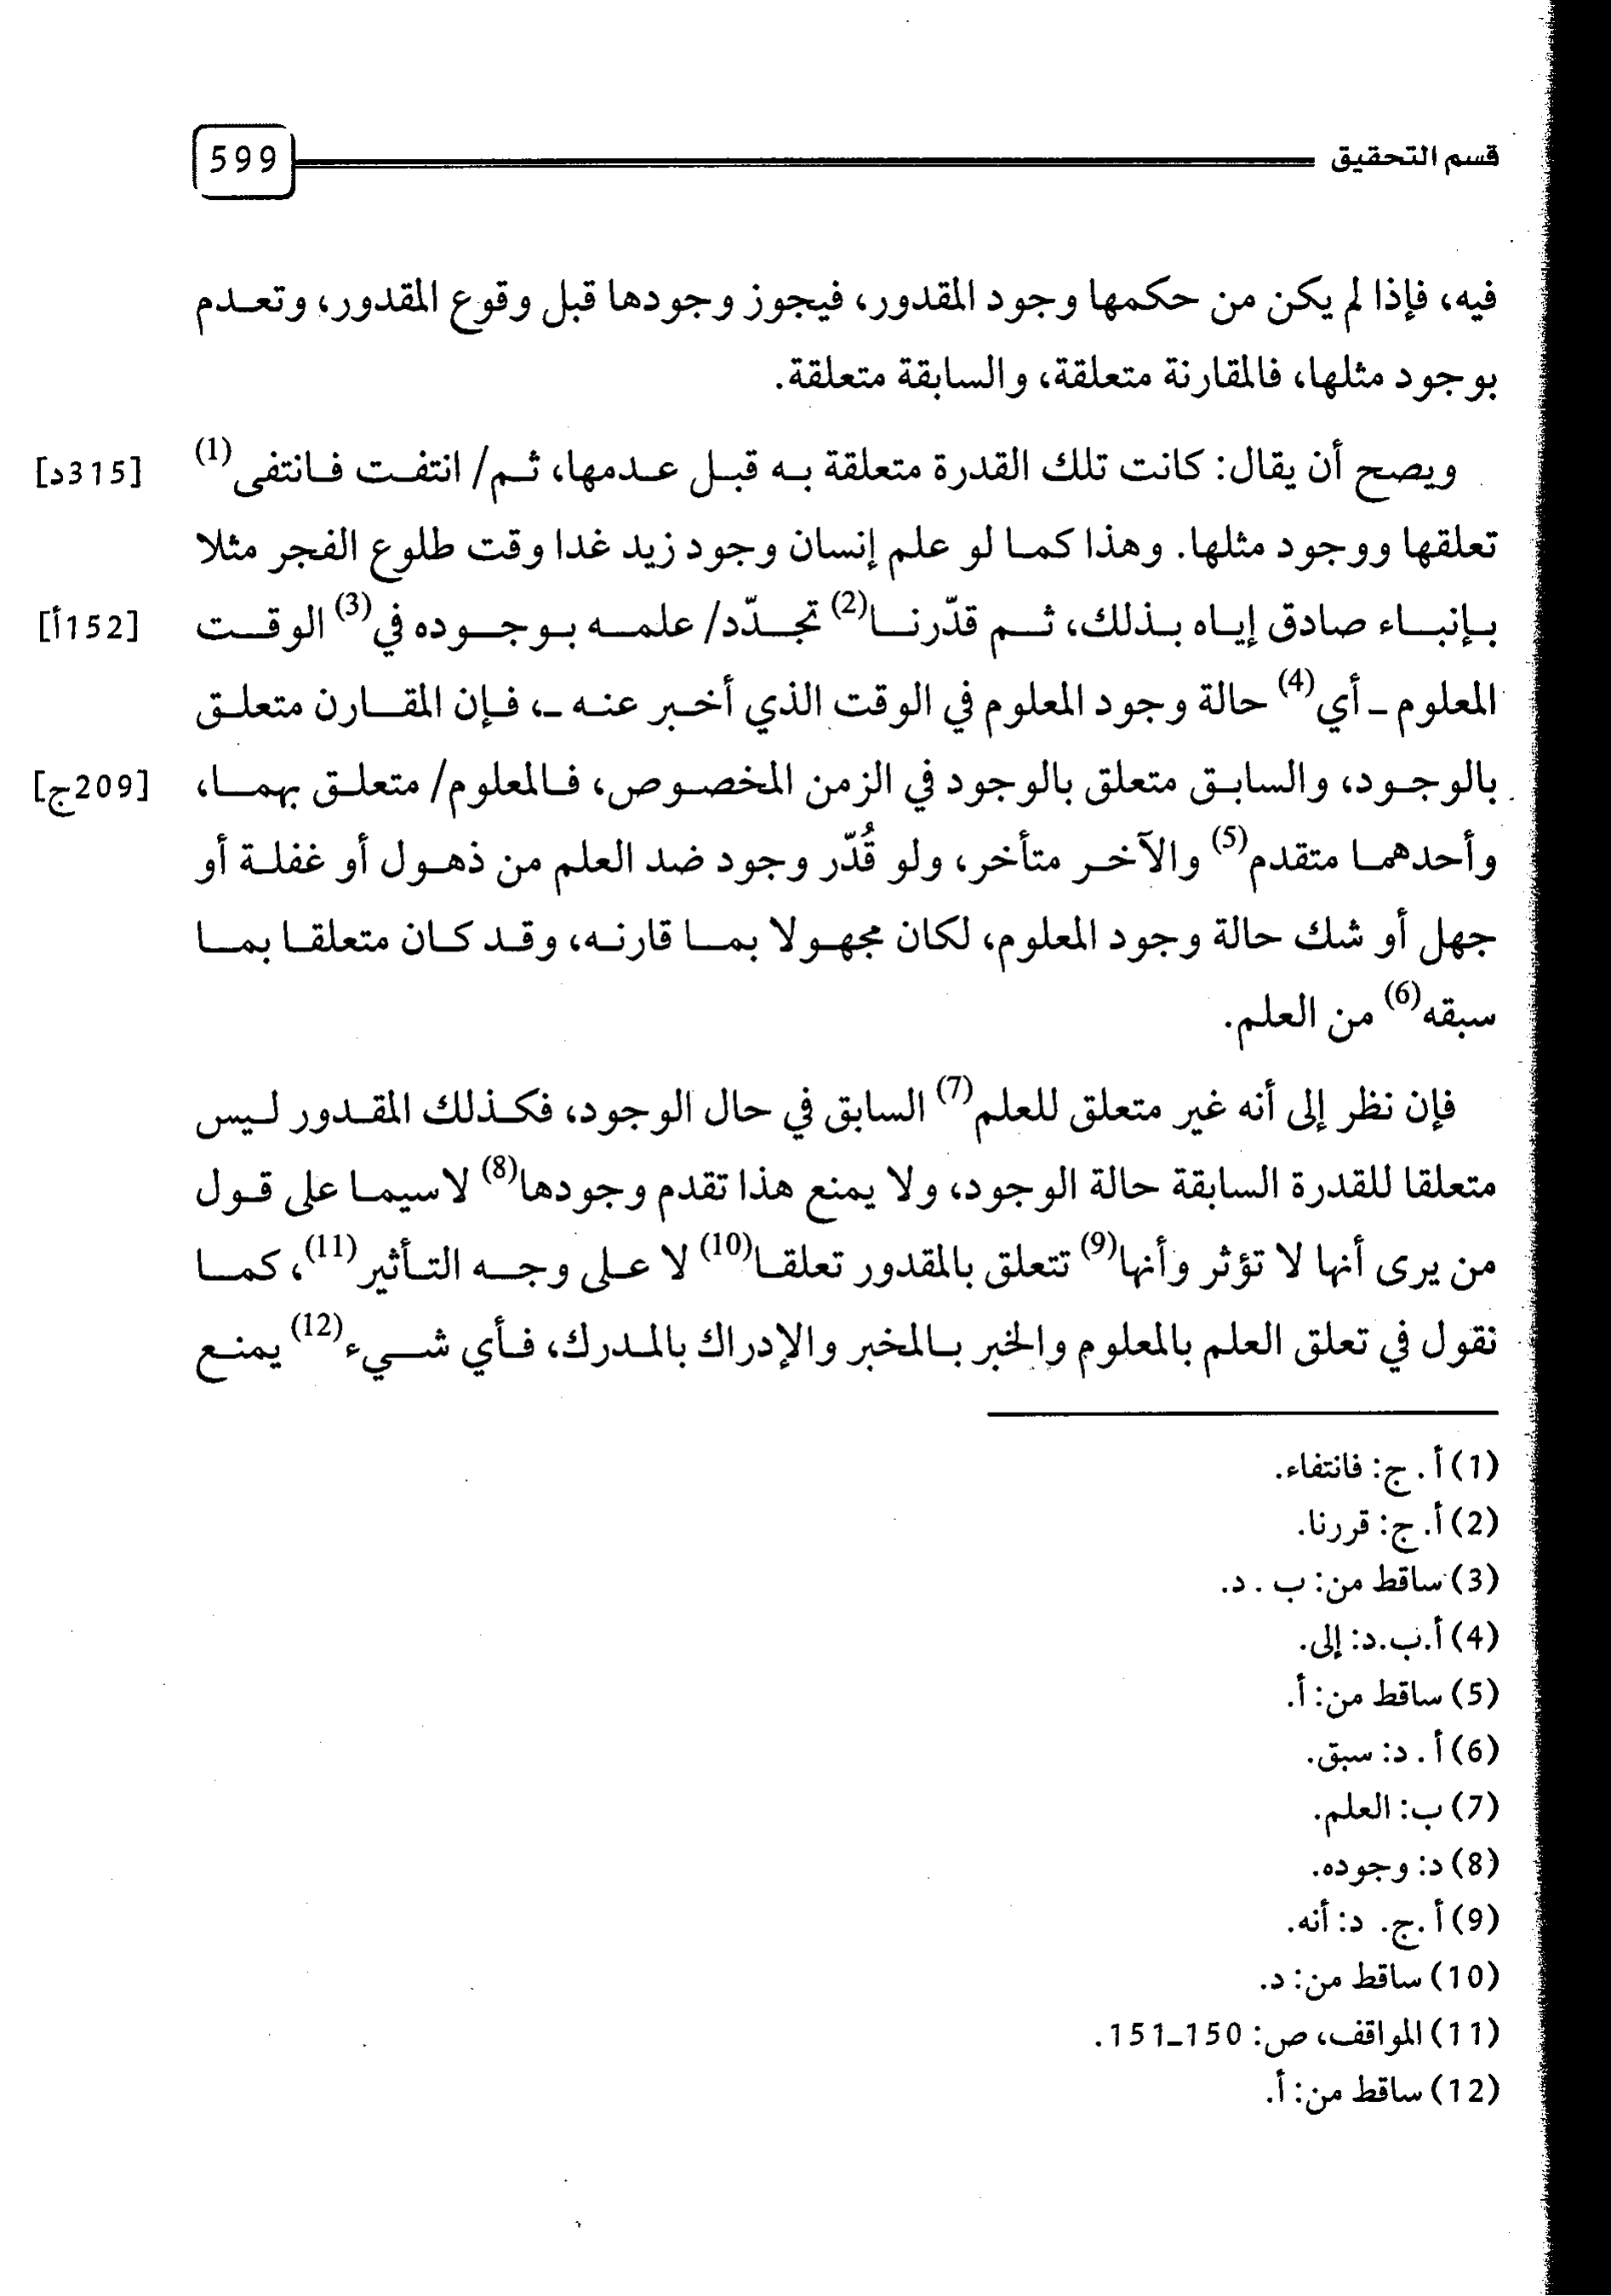 قسم التحقيق 599
فيه، فإذا لم يكن من حكمها وجود المقدور، فيجوز وجودها قبل وقوع المقدور، وتعدم
بوجود مثلها، فالمقارنة متعلقة، والسابقة متعلقة.
ويصح أن يقال: كانت تلك القدرة متعلقة به قبل عدمها، ثم/ انتفت فانتفى(1) [315د]
تعلقها ووجود مثلها. وهذا كما لو علم إنسان وجود زيد غدا وقت طلوع الفجر مثلا
بإنباء صادق إياه بذلك، ثم قدّرنا(2) تجدّد/ علمه بوجوده في(3) الوقت [152أ]
المعلوم ـ أي(4) حالة وجود المعلوم في الوقت الذي أخبر عنه ـ، فإن المقارن متعلق
بالوجود، والسابق متعلق بالوجود في الزمن المخصوص، فالمعلوم/ متعلق بهما، [209ج]
وأحدهما متقدم(5) والآخر متأخر، ولو قُدّر وجود ضد العلم من ذهول أو غفلة أو
جهل أو شك حالة وجود المعلوم، لكان مجهولا بما قارنه، وقد كان متعلقا بما
سبقه(6) من العلم.
فإن نظر إلى أنه غير متعلق للعلم(7) السابق في حال الوجود، فكذلك المقدور ليس
متعلقا للقدرة السابقة حالة الوجود، ولا يمنع هذا تقدم وجودها(8) لاسيما على قول
من يرى أنها لا تؤثر وأنها(9) تتعلق بالمقدور تعلقا(10) لا على وجه التأثير(11)، كما
نقول في تعلق العلم بالمعلوم والخبر بالمخبر والإدراك بالمدرك، فأي شيء(12) يمنع
(1) أ. ج: فانتفاء.
(2) أ. ج: قررنا.
(3) ساقط من: ب . د.
(4) أ.ب.د: إلى.
(5) ساقط من: أ.
(6) أ . د: سبق.
(7) ب: العلم.
(8) د: وجوده.
(9) أ .ج. د: أنه.
(10) ساقط من: د.
(11) المواقف، ص: 150ـ151.
(12) ساقط من: أ.